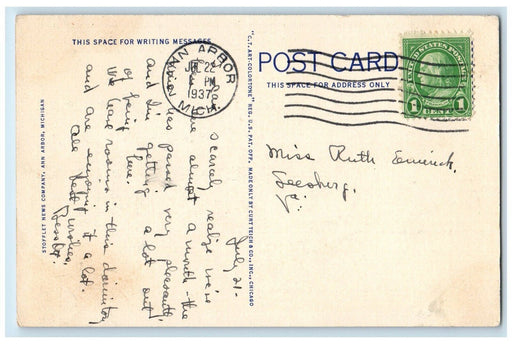 THIS SPACE FOR WRITING MESSAGES
POST CARD
THIS SPACE FOR ADDRESS ONLY
ANN ARBOR
JUL 22
PM
1937
MICH.
UNITED STATES POSTAGE
1 1
July 21-
scarcely realize we've
been here almost a month - the
time has passed very pleasantly
and I'm getting a lot out
of being here.
We have rooms in this dormitory
and are enjoying it a lot.
Best wishes,
Miss Ruth
Leesburg,
Va.
SPLOFLET NEWS COMPANY, ANN ARBOR, MICHIGAN
"C.T. ART-COLORTONE" REG. U.S. PAT. OFF. MADE ONLY BY CURT TEICH & CO., INC., CHICAGO